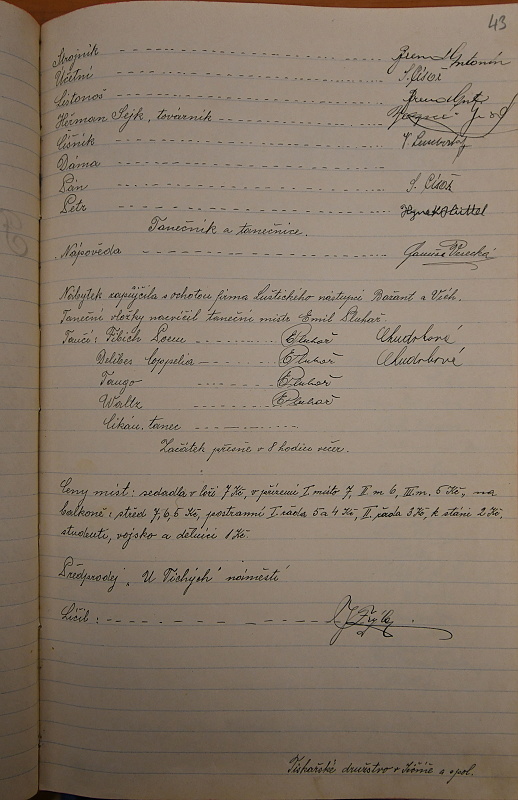 43
Strojník - - - Brem Antonín
Účetní - - - S. Císař
Listonoš - - - Brem Ant.
Heřman Sejk, továrník - - -
Číšník - - - V. Lumbertz
Dáma - - -
Pán - - - S. Císař
Petr - - - Hynek Hüttel
Tanečník a tanečnice.
Nápověda - - -
Nábytek zapůjčila s ochotou firma Luštického nástupci Bažant a Vích.
Taneční vložky nacvičil taneční mistr Emil Pluhař.
Tančí: Fibich Poem - - - EPluhař Chudobová
Delibes Coppelia - - - EPluhař Chudobová
Tango - - - EPluhař
Waltz - - - EPluhař
Cikán. tanec - - -
Začátek přesně v 8 hodin večer.
Ceny míst: sedadla v loži 7 Kč, v přízemí I. místo 7, II. m. 6, III. m. 5 Kč, na
balkoně: střed 7, 6, 5 Kč, postranní I. řada 5 a 4 Kč, II. řada 3 Kč, k stání 2 Kč,
studenti, vojsko a dělníci 1 Kč.
Předprodej „U Tichých" náměstí
Líčil: - - -
Tiskařské družstvo v Jičíně a spol.